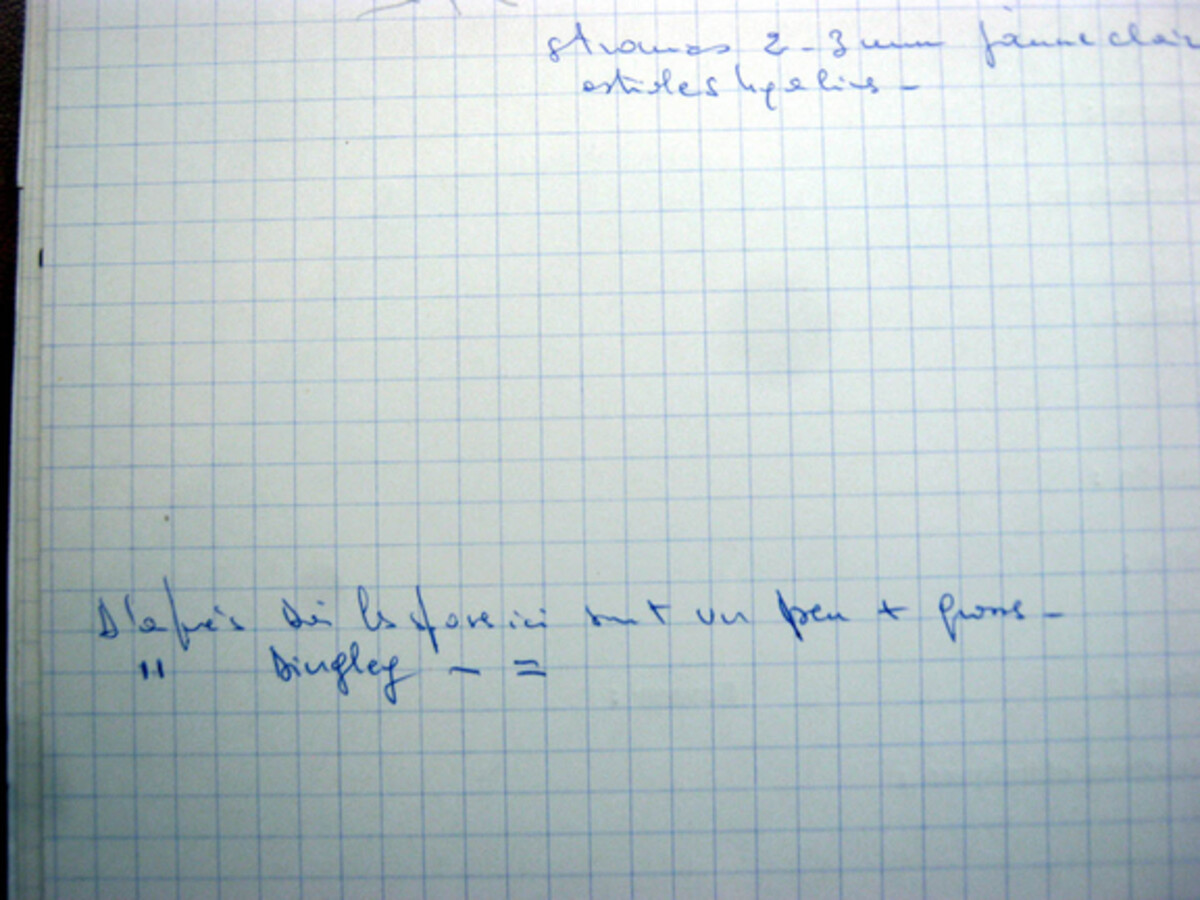 stromas 2-3 mm jaune clair
ostioles hyalins -
D'après Doi les spores ici sont un peu + grosses -
" Dingley - =